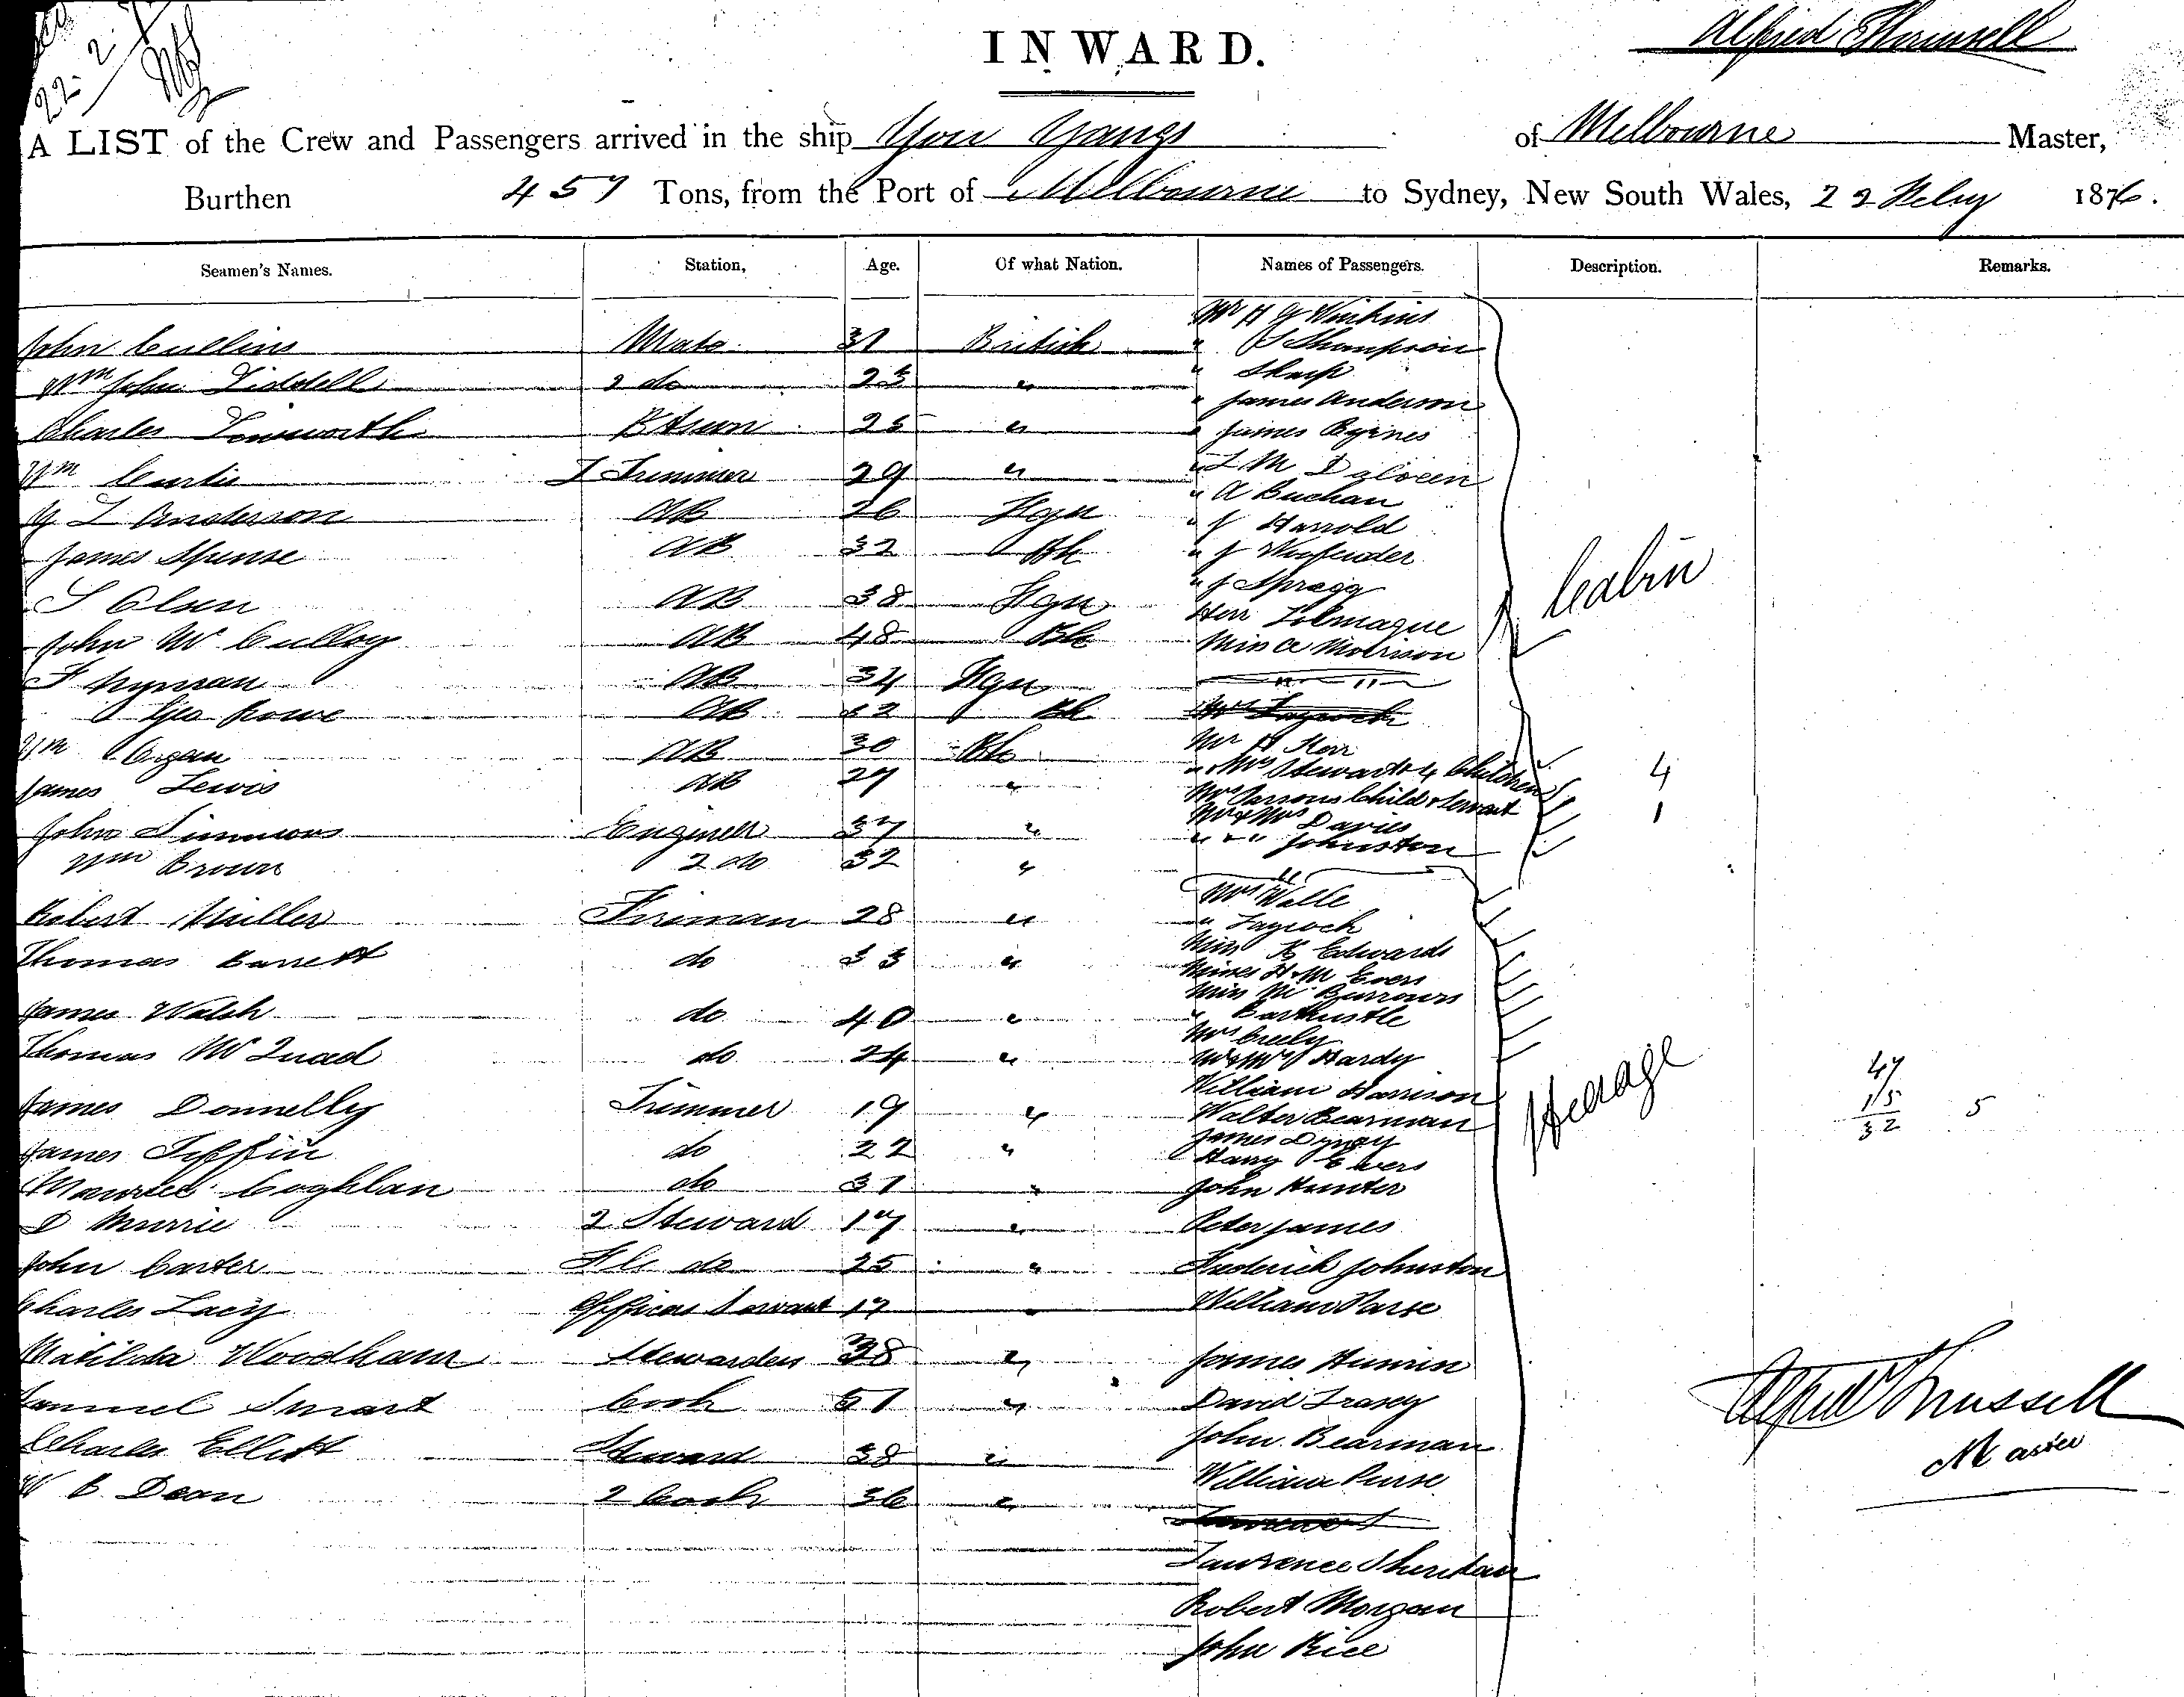 22.2
INWARD.
Alfred Trussell
A LIST of the Crew and Passengers arrived in the ship You Yangs of Melbourne Master,
Burthen 457 Tons, from the Port of Melbourne to Sydney, New South Wales, 22 Feby 1876.
Seamen's Names. Station, Age. Of what Nation. Names of Passengers. Description. Remarks.
Mr H J Watkins
John Cullins Mate 31 British " Thompson
Wm John Liddell 2 do 23 " " Sharp
" James Anderson
Charles Tomworth BSwn 25 " " James Byrnes
Wm Curtis L Trimmer 29 " " L M
" A Buchan
G L Anderson AB 26 Fgn " J Harrold
James Spense AB 32 Bh " J Woofender
S Olsen AB 38 Fgn " J Spragg
Herr
John McCulloy AB 48 Bh Miss A Morrison
F Nyman AB 34 Fgn
Geo Rowe AB 62 Bh
Wm Organ AB 30 Bh Mr H Kerr
James Lewis AB 27 " " Mrs Stewart & 4 Children 4
Mrs Parsons Child & Servant 1
John Simmons Engineer 37 " Mr & Mrs Davies
Wm Brown 2 do 32 " " " " Johnston
Cabin
Mrs Walle
Robert Miller Fireman 28 " " Laycock
Thomas Barrett do 33 " Miss K Edwards
Misses H & M Evers
Miss M Burrows
James Walsh do 40 " "
Mrs Creely
Thomas McQuad do 24 " Mr & Mrs Hardy
William Harrison
James Donnelly Trimmer 19 " Walter Bearman
James
James Tiffin do 22 " Harry Evers
Maurice Coghlan do 31 " John Hunter
D Murrie 2 Steward 17 " Peter James
John Carter F C do 25 " Frederick Johnston
Charles Lacy Officers Servant 17 " William Parse
Matilda Woodham Stewardess 38 " James
Samuel Smart Cook 51 " David Trasey
Charles Elliott Steward 38 " John Bearman
W B Dean 2 Cook 36 " William Purse
Lawrence Sheridan
Robert Morgan
John Rice
Steerage
47
15
32 5
Alfred Trussell
Master